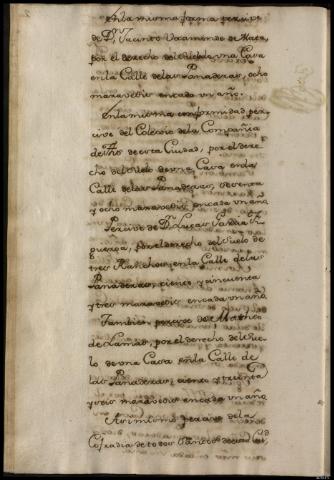 En la misma forma percive
de Dn. Jacinto Vaamonde de Mera,
por el derecho del suelo de una Casa
en la Calle de las Panaderas, ocho
maravedis en cada un año.
En la misma conformidad, per-
cive del Colegio de la Compañia
de Jhs de esta Ciudad, por el dere-
cho del suelo de una Casa en la
Calle de las Panaderas,
y ocho maravedis en cada un año
Percive de Dn. Lucas
por el derecho del Suelo de
tres en la Calle de las
Panaderas, ciento y cinquenta
y tres maravedis en cada un año
Tambien percive de
de Lamas, por el derecho del sue-
lo de una Casa en la Calle de
las Panaderas, ciento y treinta
y seis maravedis en cada un año
Asimismo percive de la
Cofradia de todos Santos de esta Ciud